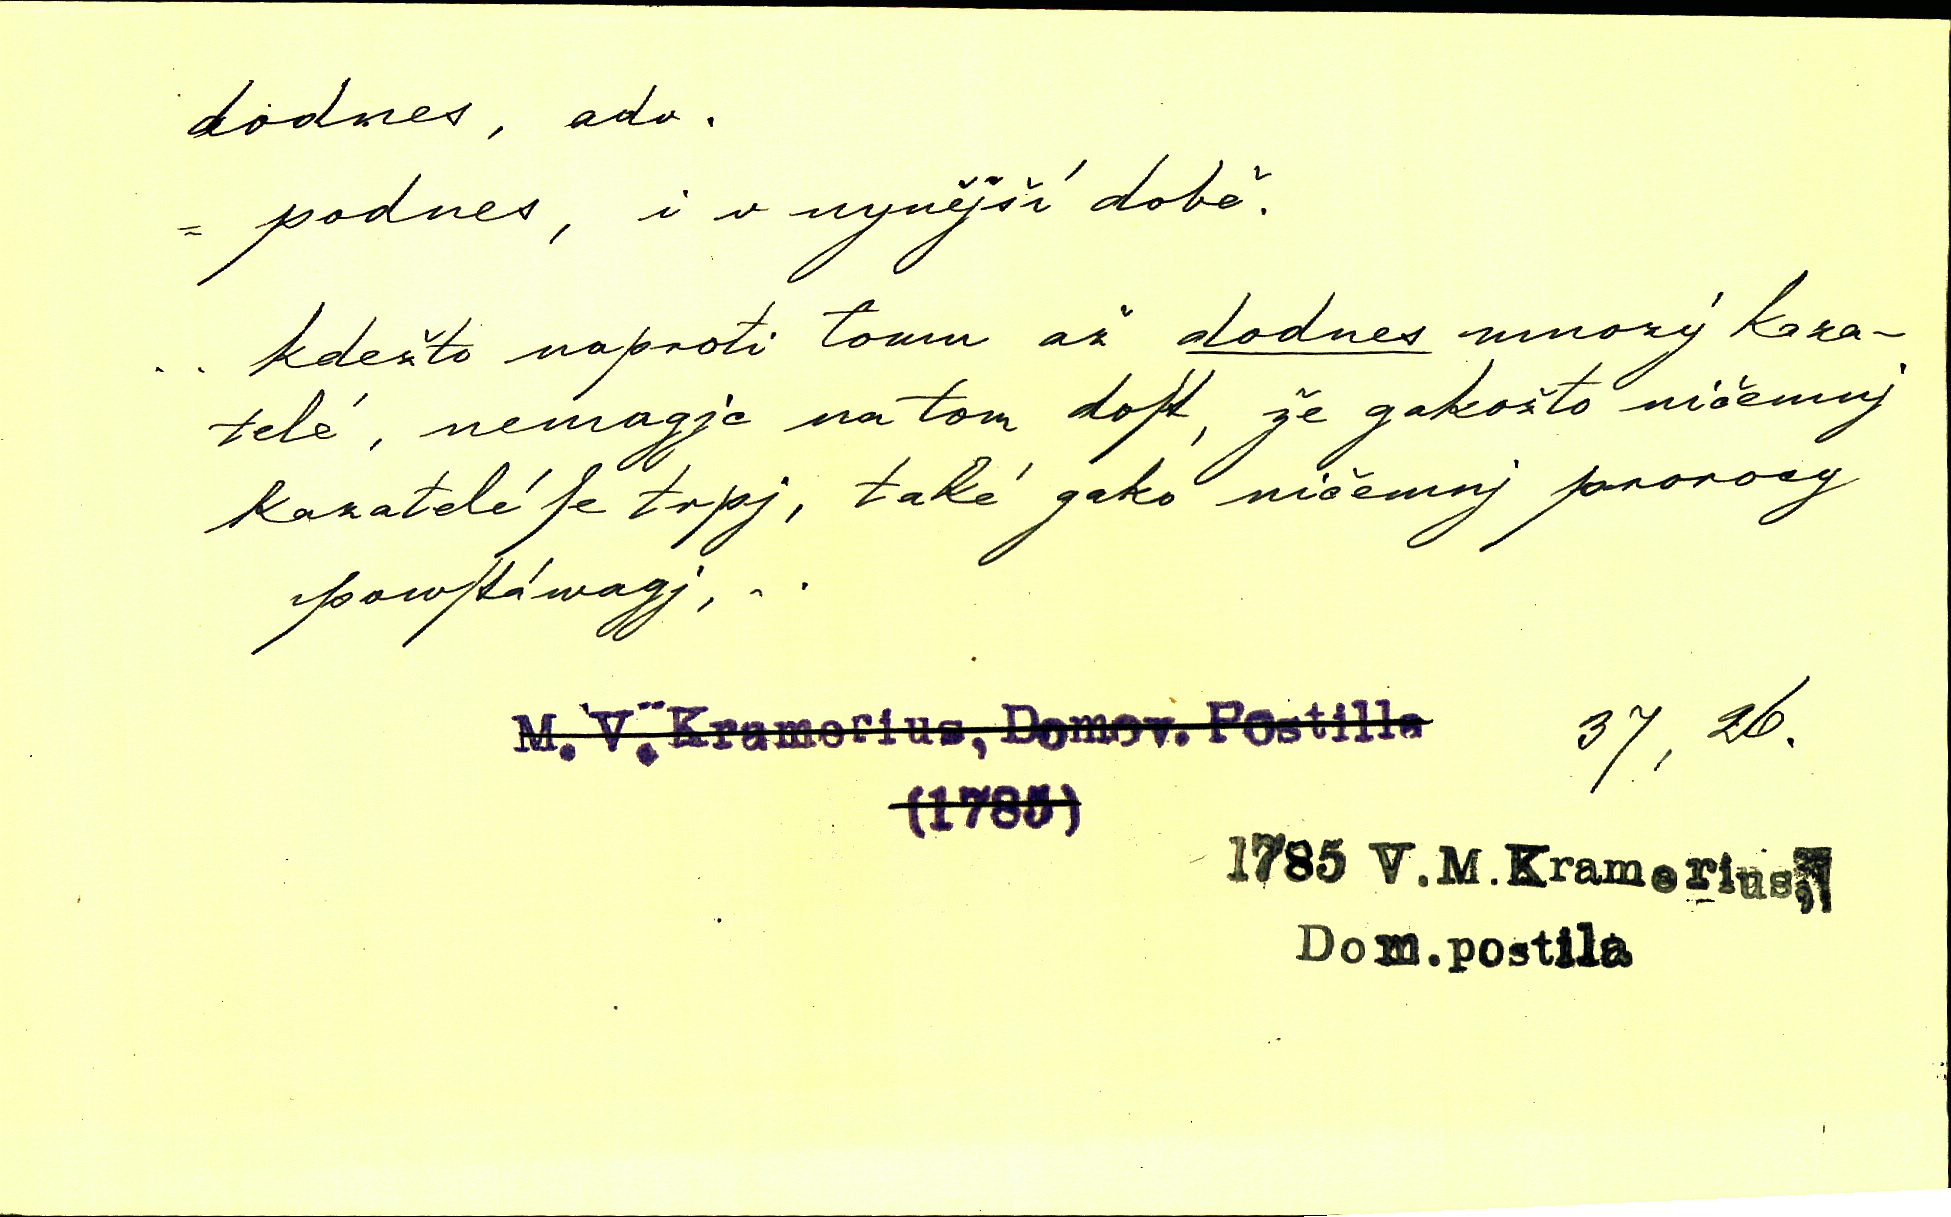 dodnes, adv.
= podnes, i v nynější době.
.. kdežto naproti tomu až dodnes mnozý kaza-
telé, nemagjc na tom doſt, že gakožto ničemnj
kazatelé ſe trpj, také gako ničemnj prorocy
powſtáwagj, ..
M. V. Kramerius, Domov. Postilla 37, 26.
(1785)
1785 V.M.Kramerius,
Dom.postila